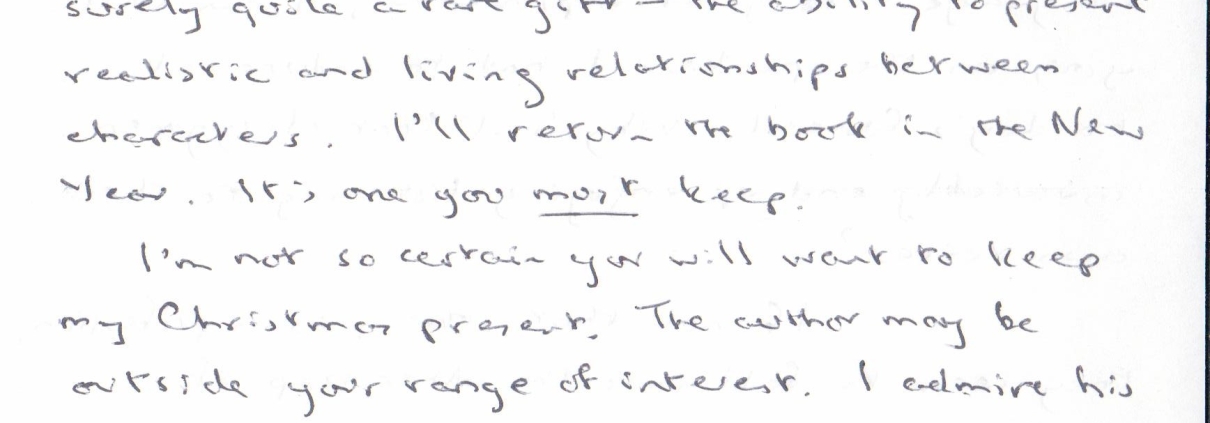 surely quite a rare gift – the ability to present
realistic and living relationships between
characters. I'll return the book in the New
Year. It's one you must keep.
I'm not so certain you will want to keep
my Christmas present. The author may be
outside your range of interest. I admire his